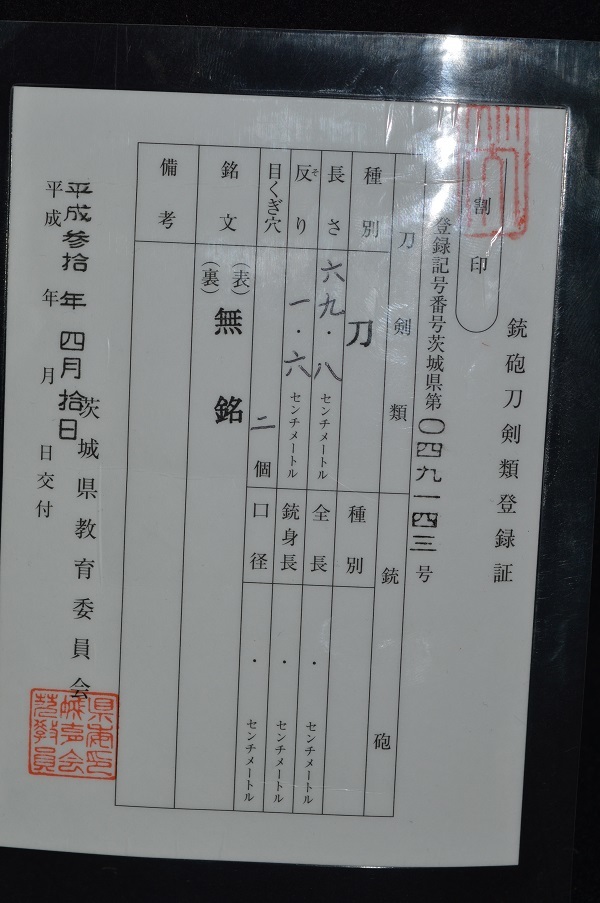 銃砲刀剣類登録証
割印
登録記号番号茨城県第〇四九一四三号
刀剣類
銃砲
種別 刀
長さ 六九・八センチメートル
反り 一・六センチメートル
そ
目くぎ穴 二個
銘文 (表) 無銘
(裏)
備考
種別
全長 ・ センチメートル
銃身長 ・ センチメートル
口径 ・ センチメートル
平成参拾年四月拾日
平成 年 月 日交付
茨城県教育委員会